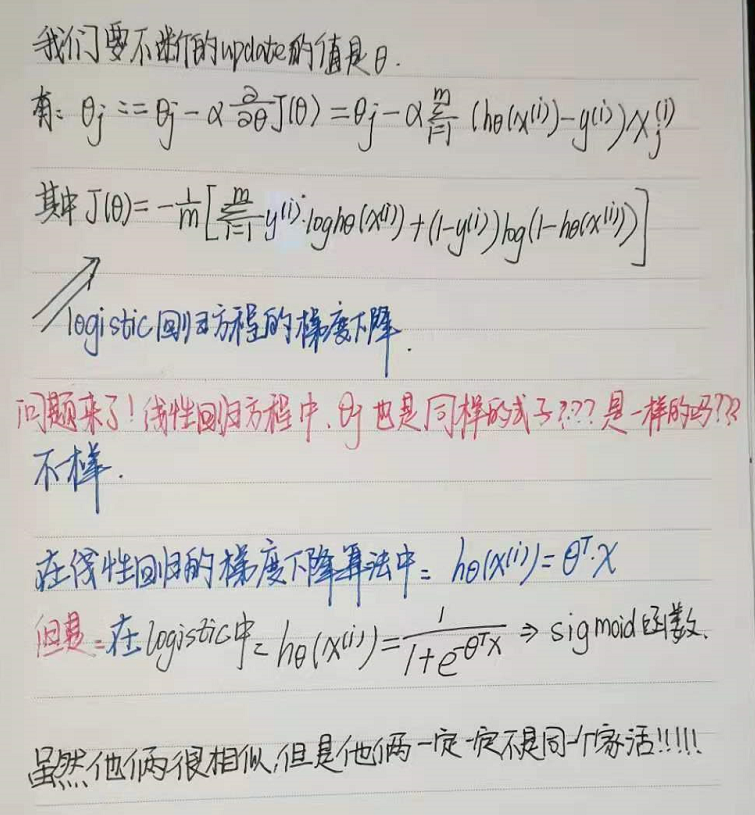 我们要不断的update的值是θ.
有: θj := θj - α ∂/∂θ J(θ) = θj - α Σ_{i=1}^{m} (hθ(x^(i)) - y^(i)) x_j^(i)
其中 J(θ) = -1/m [ Σ_{i=1}^{m} y^(i)·log hθ(x^(i)) + (1-y^(i)) log(1-hθ(x^(i))) ]
logistic回归方程的梯度下降.
问题来了!线性回归方程中、θj也是同样的式子???是一样的吗???
不一样.
在线性回归的梯度下降算法中: hθ(x^(i)) = θ^T·x
但是:在logistic中: hθ(x^(i)) = 1/(1+e^{-θ^T x}) ⇒ sigmoid函数.
虽然他俩很相似,但是他俩一定一定不是同一个家活!!!!!